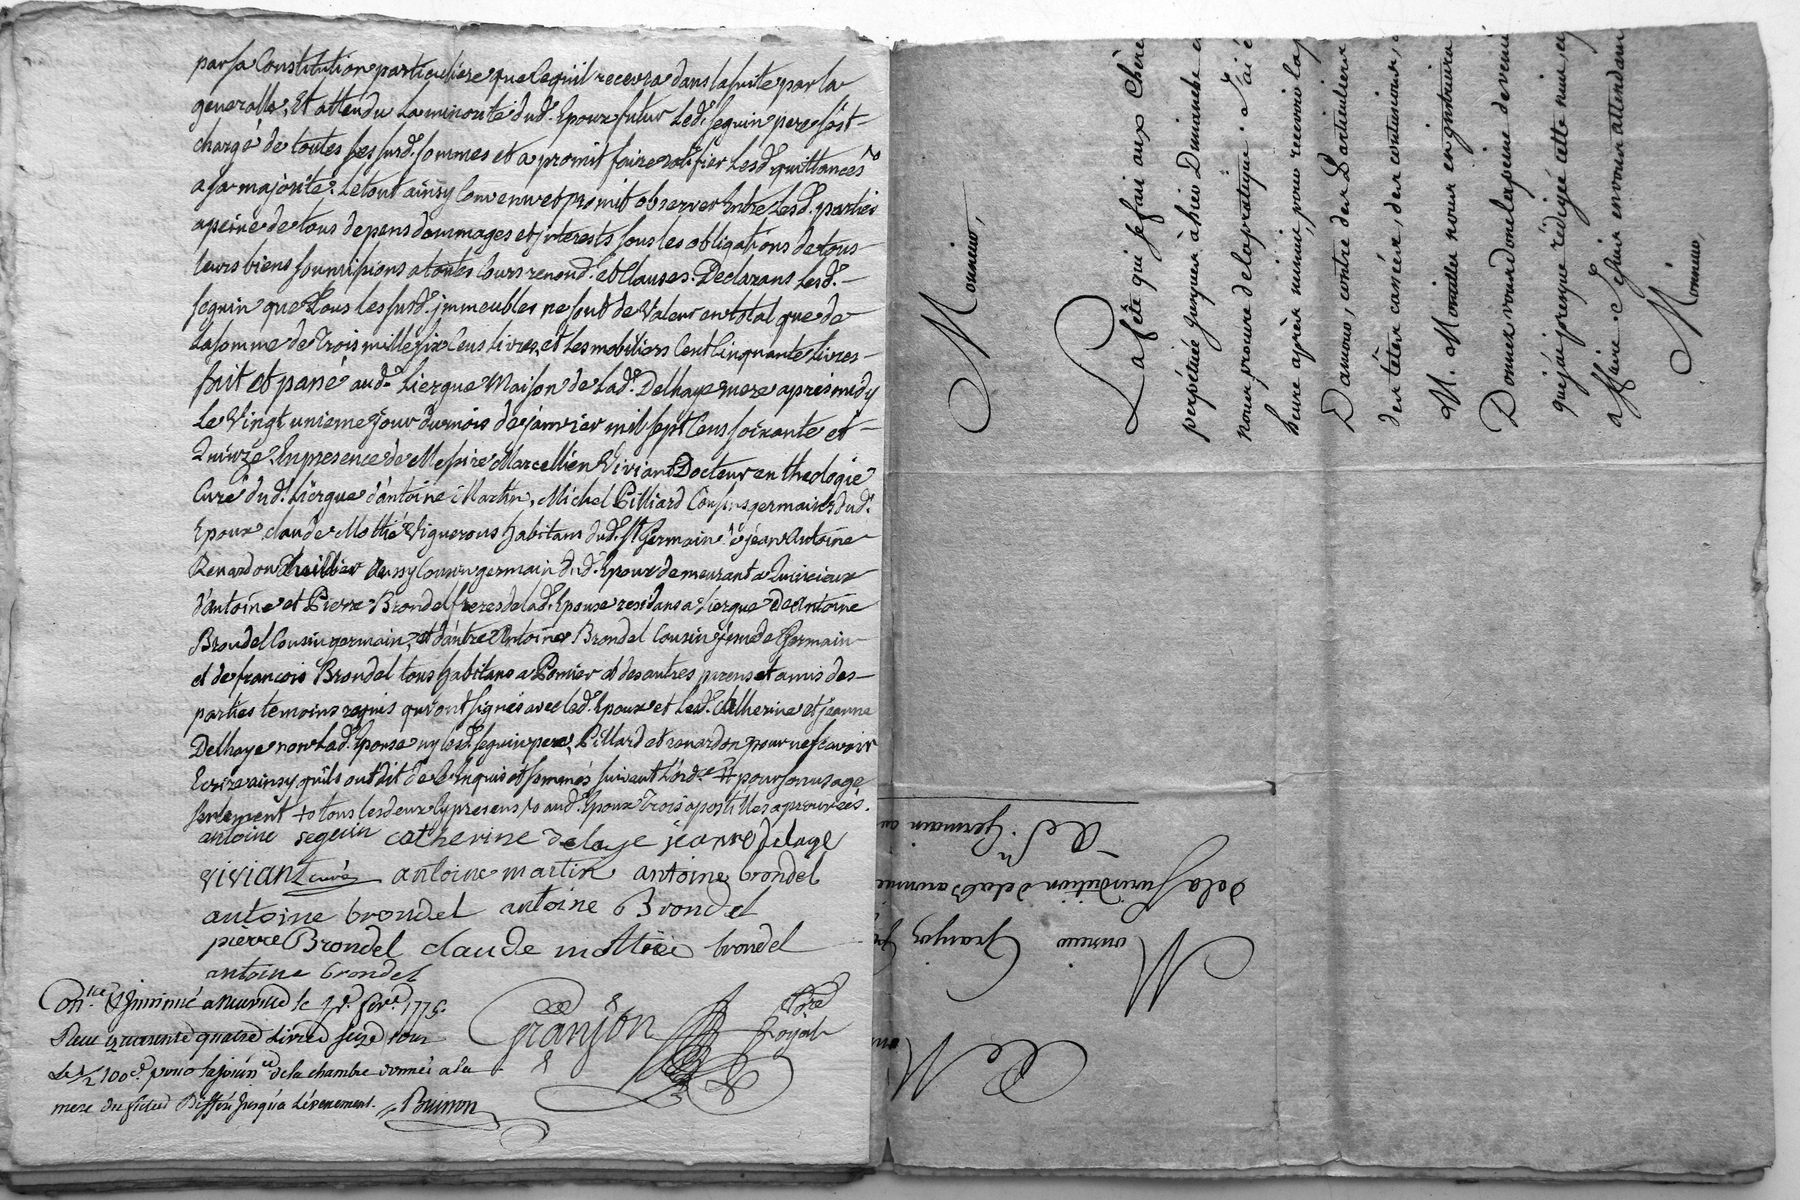 par sa Constitution particuliere que Cequil recevra dans la suite par la
generalle, Et attendu La minorité dud. Epoux futur Led. Seguin pere s'est
chargé de toutes ses surd. sommes et a promit faire ratifier Lesd. quittances
a sa majorité. Le tout ainsy Convenu et promit observer Entre Lesd. parties
a peine de tous depens dommages et jnterests sous les obligations de tous
leurs biens soumissions a toutes Cours renond. et Clauses. Declarans Lesd.
Seguin que Tous les susd. jmmeubles ne sont de Valeur en total que de
La somme de Trois mille six Cens Livres, et Les mobiliers Cent Cinquante Livres
fait et passé aud. Liergue Maison de Lad. Delhaye mere apres midy
Le Vingt unieme Jour du mois de janvier mil sept Cens soixante et
Quinze. En presence de Messire Marcellien Viviant Docteur en theologie
Curé dud. Liergue d'antoine Martin, Michel Pilliard Cousins germains dud.
Epoux claude Mottié Vignerons habitans dud. St Germain & jean Antoine
Renardon aussy Cousin germain dud. Epoux demeurant a Quincieux
d'antoine et Pierre Brondel freres de lad. Epouse residans a Liergue de Antoine
Brondel Cousin germain, et d'autre Antoine Brondel Cousin jssu de Germain
et de francois Brondel tous habitans a Pomier et des autres parens et amis des
parties temoins requis qui ont signés avec led. Epoux et Lesd. Catherine et jeanne
Delhaye non Lad. Epouse ny lesd. Seguin pere, Pillard et renardon pour ne scavoir
Ecrire ainsy quils ont dit de ce Enquis et sommés suivant L'ord.ce pour son usage
seulement tous les deux Cy presens aud. Epoux Trois apostilles aprouvées.
antoine seguin catherine delaye jeanne Delaye
viviant curé antoine martin antoine brondel
antoine brondel antoine Brondel
pierre Brondel claude mottiée brondel
antoine brondel
Con.lé & Jnsinué a neuville le 1775.
Reçu quarante quatre Livres seize sous
Le 1/2 100e. pour la jouiss.ce de la chambre donnée a la
mere du futur Differé jusqu'a L'evenement. Buisson
Granjon
Royal
Monsieur,
La fête qui se fait aux Chère
perpétuée jusques à hier Dimanche
nous prouve de la pratique. J'ai é
heure après midi, pour recevoir la p
Damour, contre des Particuliers
M. Mouillet nous en instruira
Donnez vous donc la peine de venir
que j'ai presque rédigée cette nuit, et
affaire. Je suis en vous attendant
Monsieur,
A M
Monsieur Granjon
de la Jurisdiction de la Baronnie
A St. Germain au